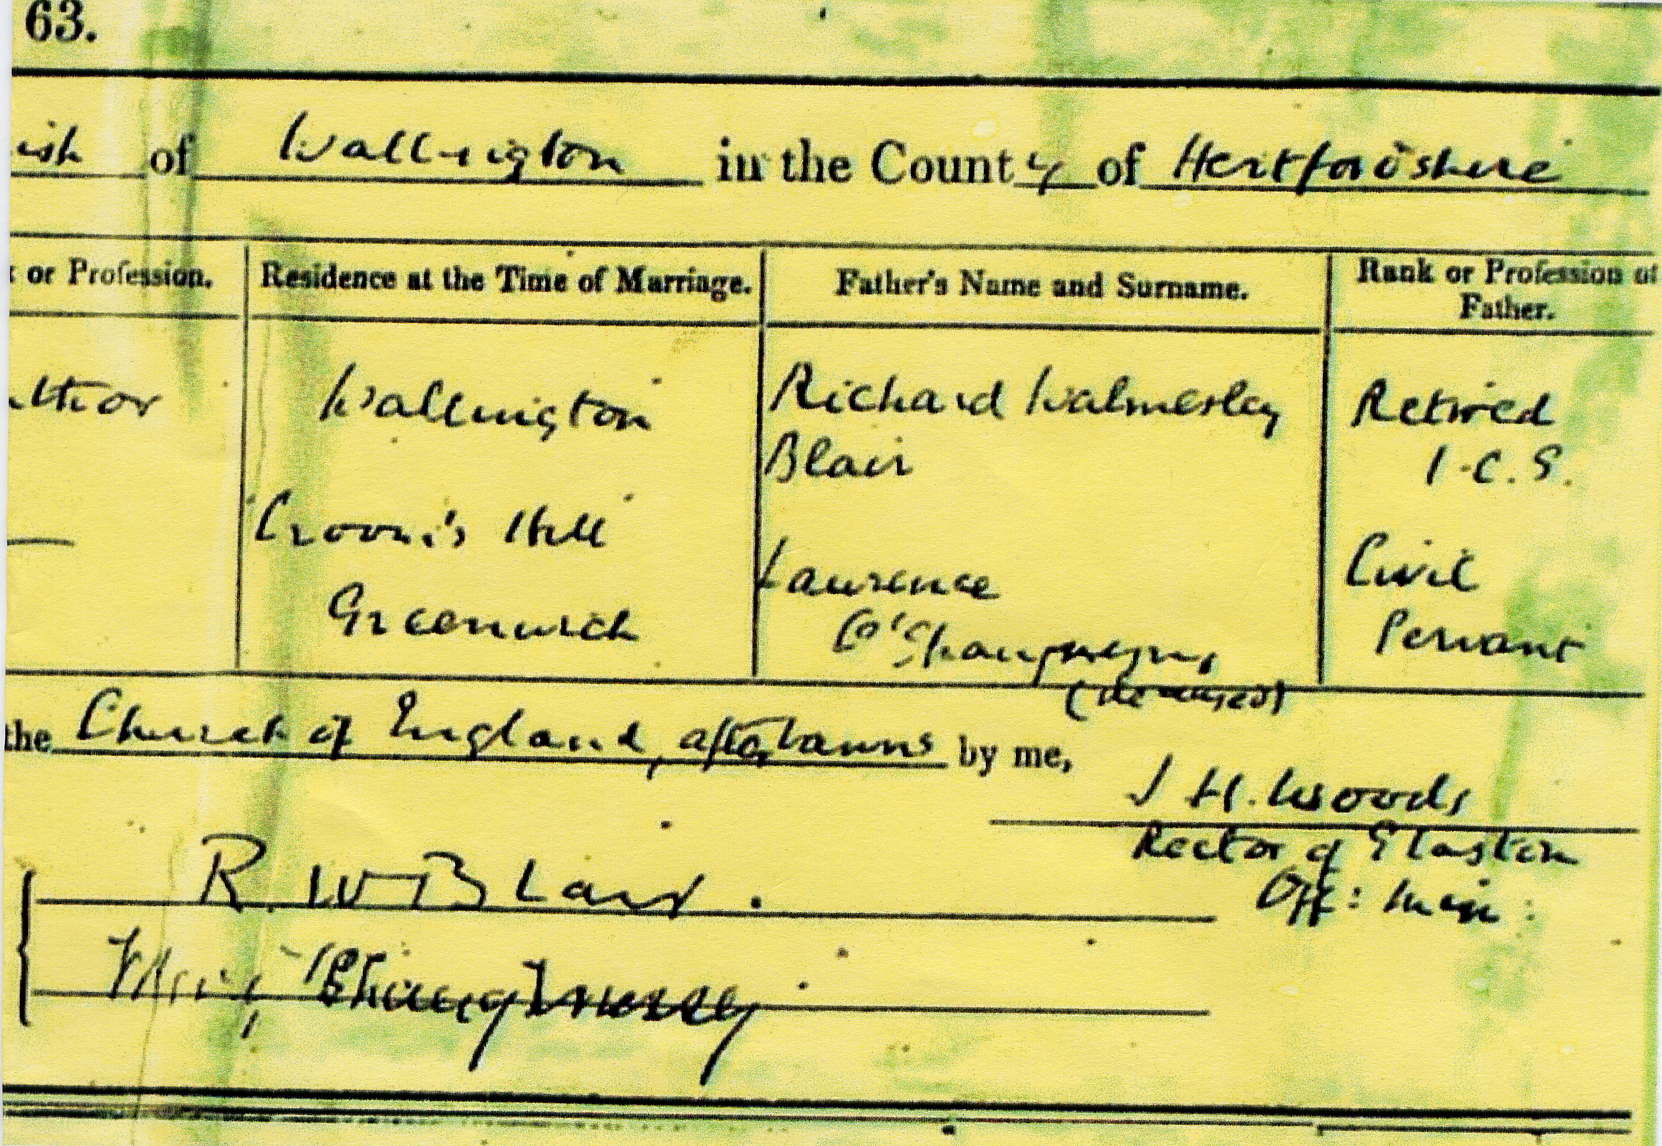 63.
ish of Wallington in the County of Hertfordshire
or Profession. Residence at the Time of Marriage. Father's Name and Surname. Rank or Profession of
Father.
uthor Wallington Richard Walmesley Retired
Blair I.C.S.
Croom's Hill
Laurence Civil
Greenwich O'Shaughnessy Servant
(deceased)
the Church of England, after banns by me,
J H. Woods
Rector of
R. W Blair. Off: Min:
O'Shaughnessy